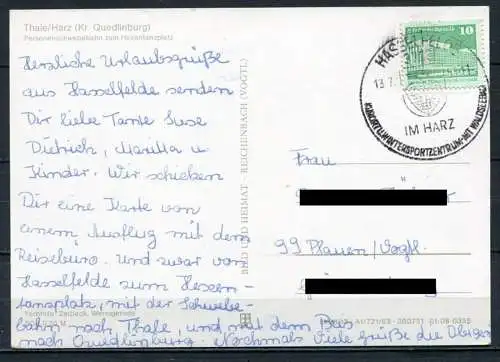 Thale/Harz (Kr. Quedlinburg)
Personenschwebebahn zum Hexentanzplatz
Herzliche Urlaubsgrüße
aus Hasselfelde senden
Dir liebe Tante Suse
Dietrich, Maritta u
Kinder. Wir schicken
Dir eine Karte von
einem Ausflug mit dem
Reisebüro. und zwar von
Hasselfelde zum Hexen-
tanzplatz, mit der Schwebe-
bahn nach Thale, und mit dem Bus
nach Quedlinburg Nochmals viele Grüße die Obigen
BILD UND HEIMAT REICHENBACH (VOGTL)
10
13.7.
IM HARZ
KURORT U. WINTERSPORTZENTRUM MIT WALDSEEBAD
Frau
99 Plauen/Vogtl.
A1/721/83 01-08-0335